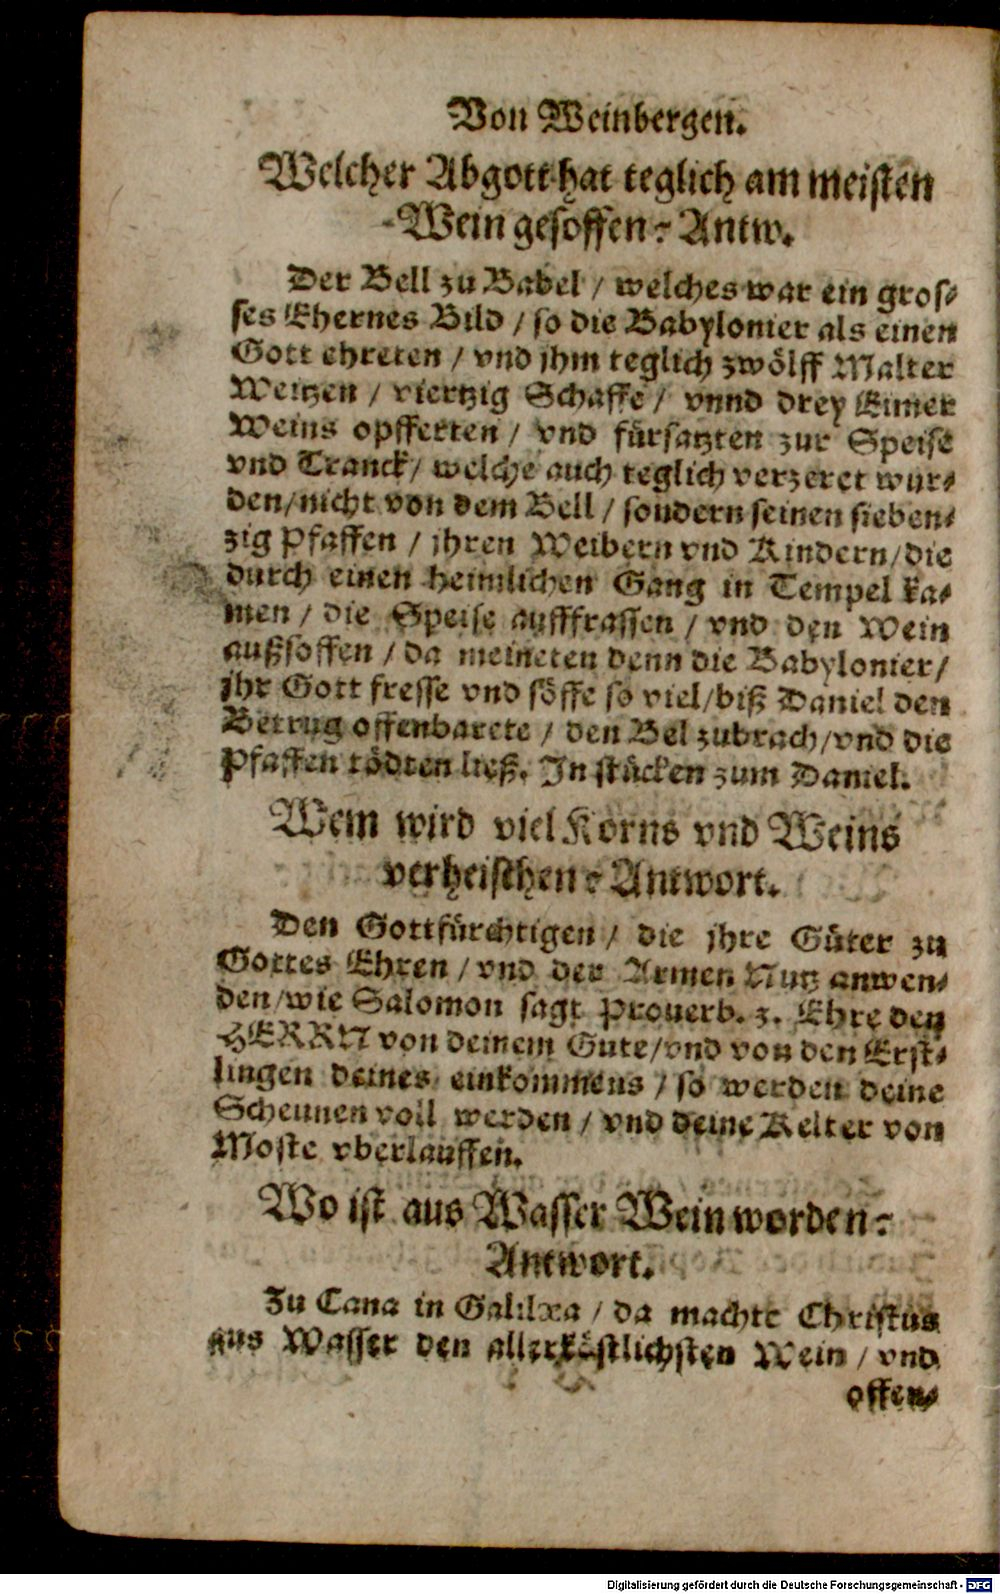 Von Weinbergen.
Welcher Abgott hat teglich am meisten
Wein gesoffen? Antw.
Der Bell zu Babel / welches war ein gros⸗
ses Ehernes Bild / so die Babylonier als einen
Gott ehreten / vnd jhm teglich zwölff Malter
Weitzen / viertzig Schaffe / vnnd drey Eimer
Weins opfferten / vnd fürsatzten zur Speise
vnd Tranck / welche auch teglich verzeret wur⸗
den / nicht von dem Bell / sondern seinen sieben⸗
zig Pfaffen / jhren Weibern vnd Kindern / die
durch einen heimlichen Gang in Tempel ka⸗
men / die Speise aufffrassen / vnd den Wein
außsoffen / da meineten denn die Babylonier /
jhr Gott fresse vnd söffe so viel / biß Daniel den
Betrug offenbarete / den Bel zubrach / vnd die
Pfaffen tödten ließ. In stücken zum Daniel.
Wem wird viel Korns vnd Weins
verheischen? Antwort.
Den Gottfürchtigen / die jhre Güter zu
Gottes Ehren / vnd der Armen Nutz anwen⸗
den / wie Salomon sagt Prouerb. 3. Ehre den
HERRN von deinem Gute / vnd von den Erst⸗
lingen deines einkommens / so werden deine
Scheunen voll werden / vnd deine Kelter von
Moste vberlauffen.
Wo ist aus Wasser Wein worden?
Antwort.
Zu Cana in Galilæa / da machte Christus
aus Wasser den allerköstlichsten Wein / vnd
offen⸗
Digitalisierung gefördert durch die Deutsche Forschungsgemeinschaft - DFG